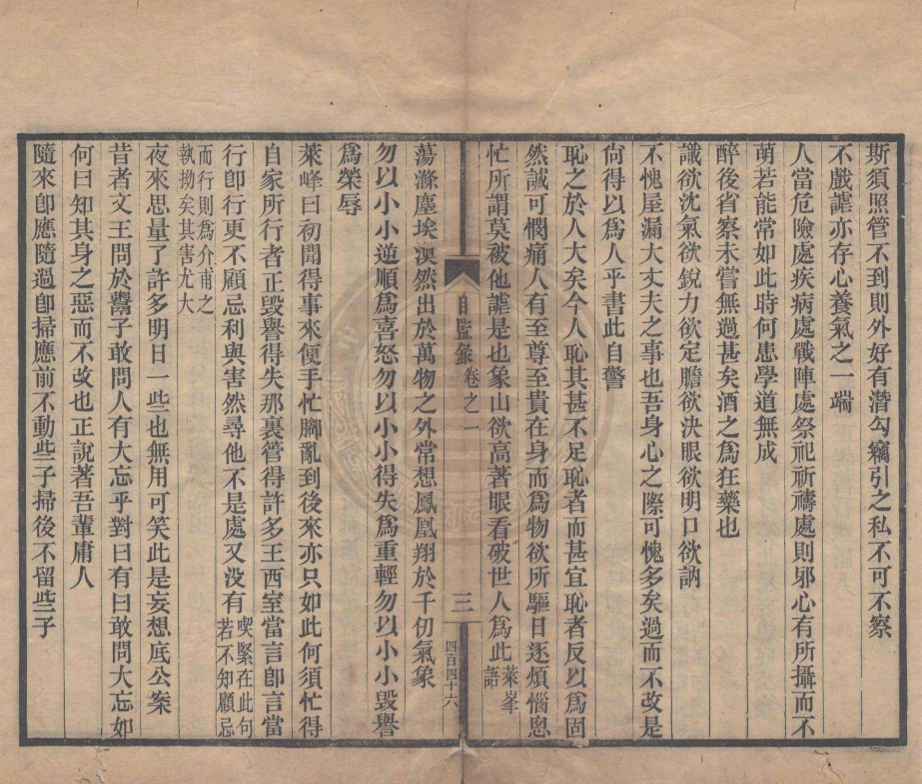 斯須照管不到則外好有潛勾竊引之私不可不察
不戲謔亦存心養氣之一端
人當危險處疾病處戰陣處祭祀祈禱處則邪心有所攝而不
萌若能常如此時何患學道無成
醉後省察未嘗無過甚矣酒之爲狂藥也
識欲沈氣欲銳力欲定膽欲決眼欲明口欲訥
不愧屋漏大丈夫之事也吾身心之際可愧多矣過而不改是
尙得以爲人乎書此自警
恥之於人大矣今人恥其甚不足恥者而甚宜恥者反以爲固
然誠可憫痛人有至尊至貴在身而爲物欲所驅日逐煩惱悤
忙所謂莫被他謔是也象山欲高著眼看破世人爲此萊峯語
自監錄卷之一
三
四百四十六
蕩滌塵埃溟然出於萬物之外常想鳳凰翔於千仞氣象
勿以小小逆順爲喜怒勿以小小得失爲重輕勿以小小毀譽
爲榮辱
萊峰曰初聞得事來便手忙腳亂到後來亦只如此何須忙得
自家所行者正毀譽得失那裏管得許多王西室當言卽言當
行卽行更不顧忌利與害然尋他不是處又没有喫緊在此句若不知顧忌
而行則爲介甫之執拗矣其害尤大
夜來思量了許多明日一些也無用可笑此是妄想底公案
昔者文王問於鬻子敢問人有大忘乎對曰有曰敢問大忘如
何曰知其身之惡而不改也正說著吾輩庸人
隨來卽應隨過卽掃應前不動些子掃後不留些子